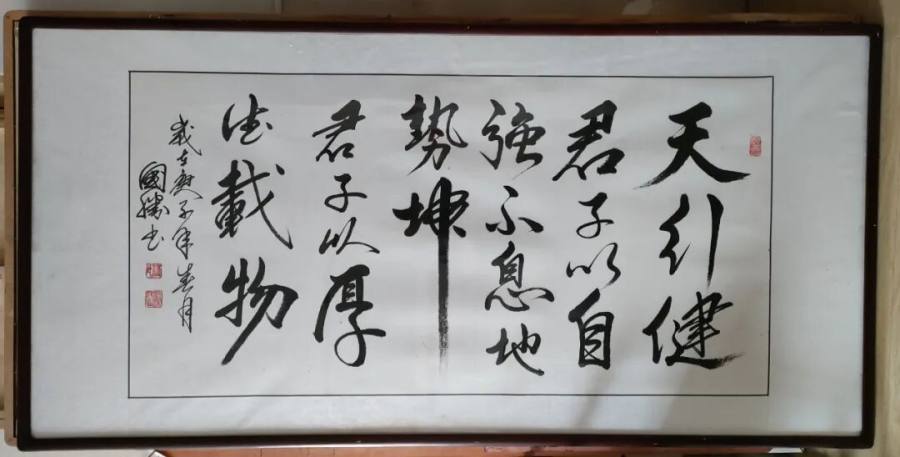 天行健
君子以自
強不息地
勢坤
君子以厚
德載物
歲在庚子年春月
國勝书